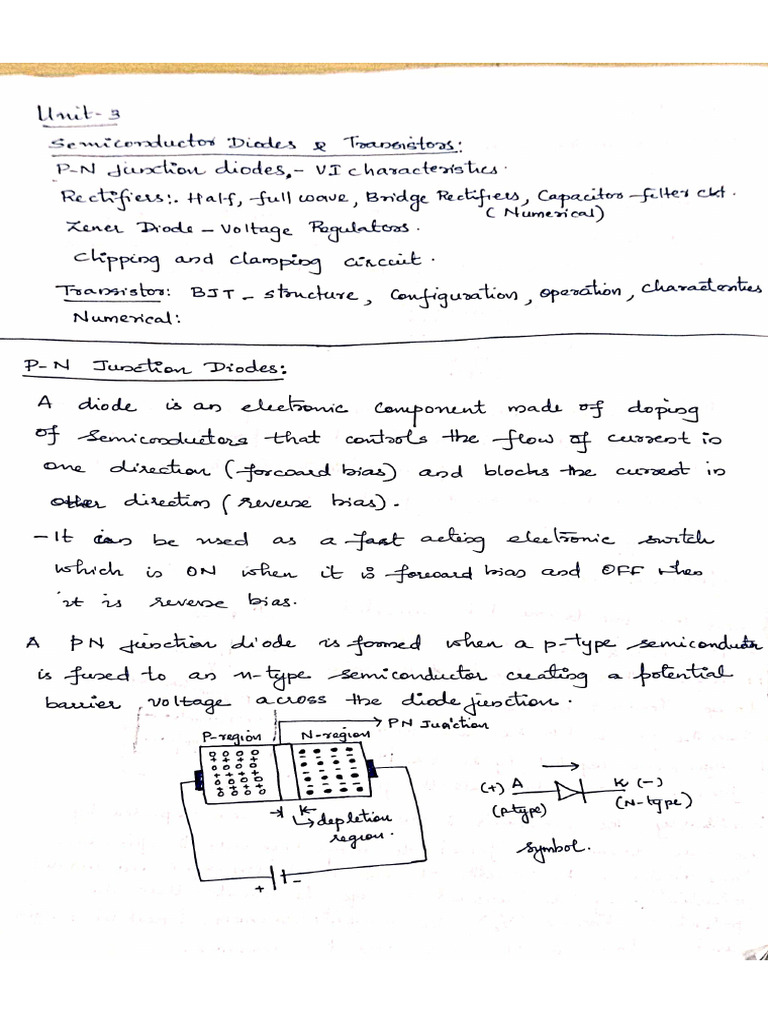 Unit-3
Semiconductor Diodes & Transistors:
P-N junction diodes,- VI characteristics.
Rectifiers:. Half, full wave, Bridge Rectifiers, Capacitor-filter ckt.
(Numerical)
Zener Diode - Voltage Regulators.
Clipping and clamping circuit.
Transistor: BJT - structure, configuration, operation, characteristics
Numerical:
P-N Junction Diodes:
A diode is an electronic component made of doping
of semiconductors that controls the flow of current in
one direction (forward bias) and blocks the current in
other direction (reverse bias).
- It can be used as a fast acting electronic switch
which is ON when it is forward bias and OFF when
it is reverse bias.
A PN junction diode is formed when a p-type semiconductor
is fused to an n-type semiconductor creating a potential
barrier voltage across the diode junction.
PN Junction
P-region N-region
depletion
region.
+ -
(+) A K (-)
(P-type) (N-type)
symbol.